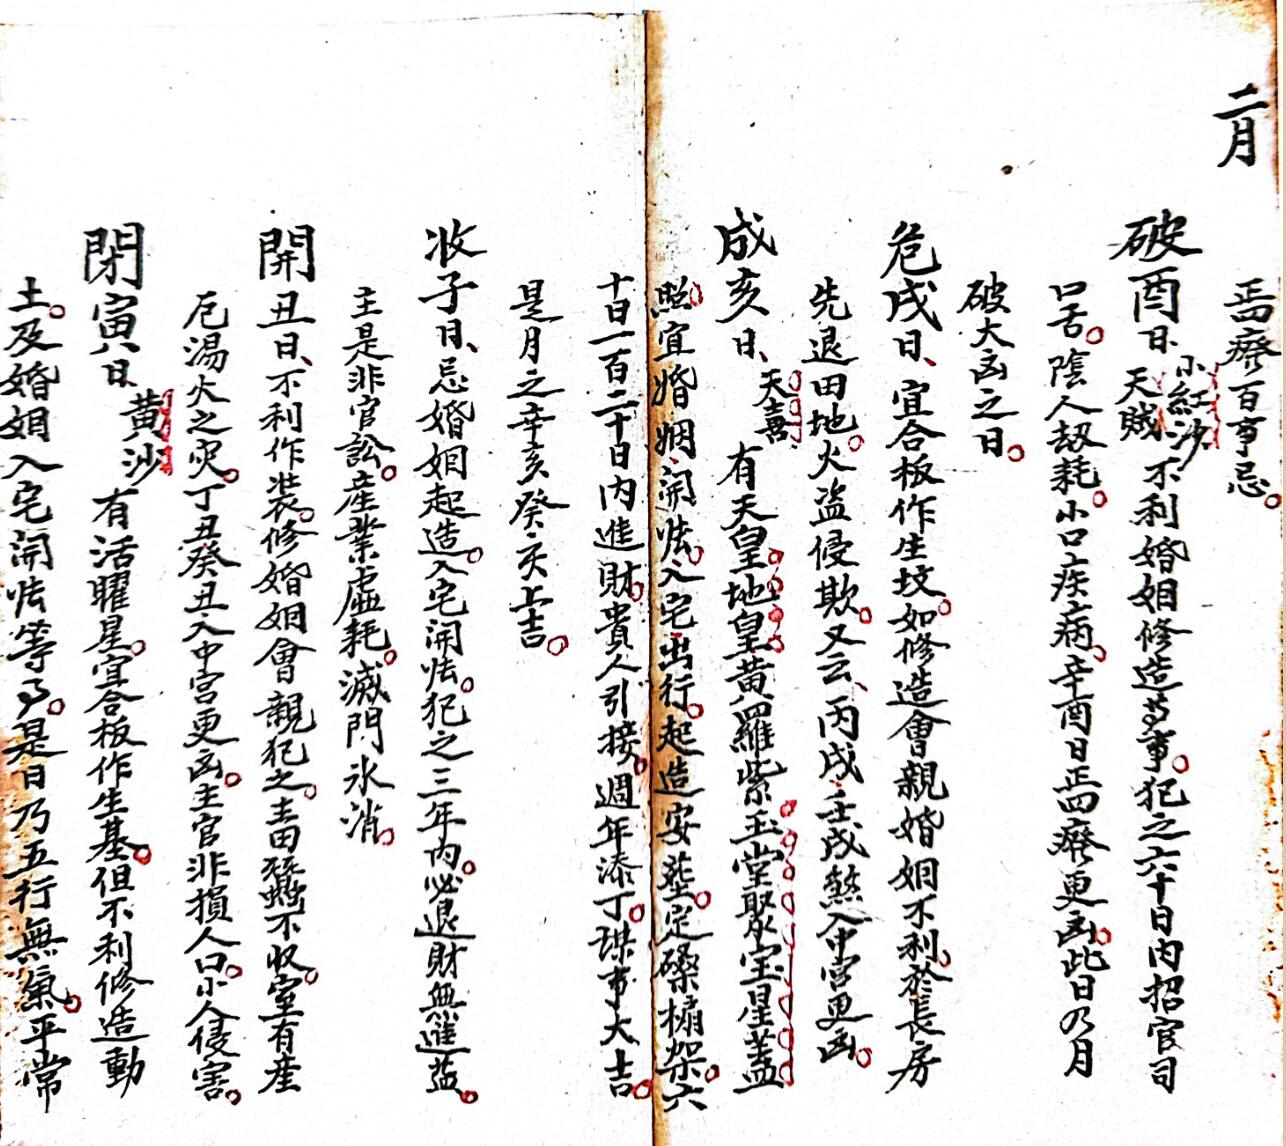 二月
焉癈百事忌。
破酉日、小紅沙天賊、不利婚姻修造等事。犯之六十日內招官司
口舌。陰人刼耗。小口疾病。辛酉日正四癈更凶。此日乃月
破大凶之日。
危戌日、宜合板作生坟。如修造會親婚姻不利。於長房
先退田地。火盜侵欺。又云、丙戌、壬戌煞入中宮更凶。
成亥日、天喜有天皇地皇黄羅紫玉堂聚宝星蓋
照。宜婚姻、開怯。入宅出行。起造安塟。定磉槒架。六
十日一百二十日內進財。貴人引接。週年添丁。謀事大吉。
是月之辛亥癸亥上吉。
收子日、忌婚姻起造。入宅開怯。犯之三年內。必退財無進益。
主是非官訟。産業虛耗。滅門氷消。
開丑日、不利作裝。修婚姻會親犯之。主田蠶不收。室有産
厄湯火之灾。丁丑癸丑入中宮更凶。主官非損人口。小人侵害。
閉寅日、黄沙有活曜星。宜合板作生基。但不利修造動
土。及婚姻入宅開怯等事。是日乃五行無氣。平常